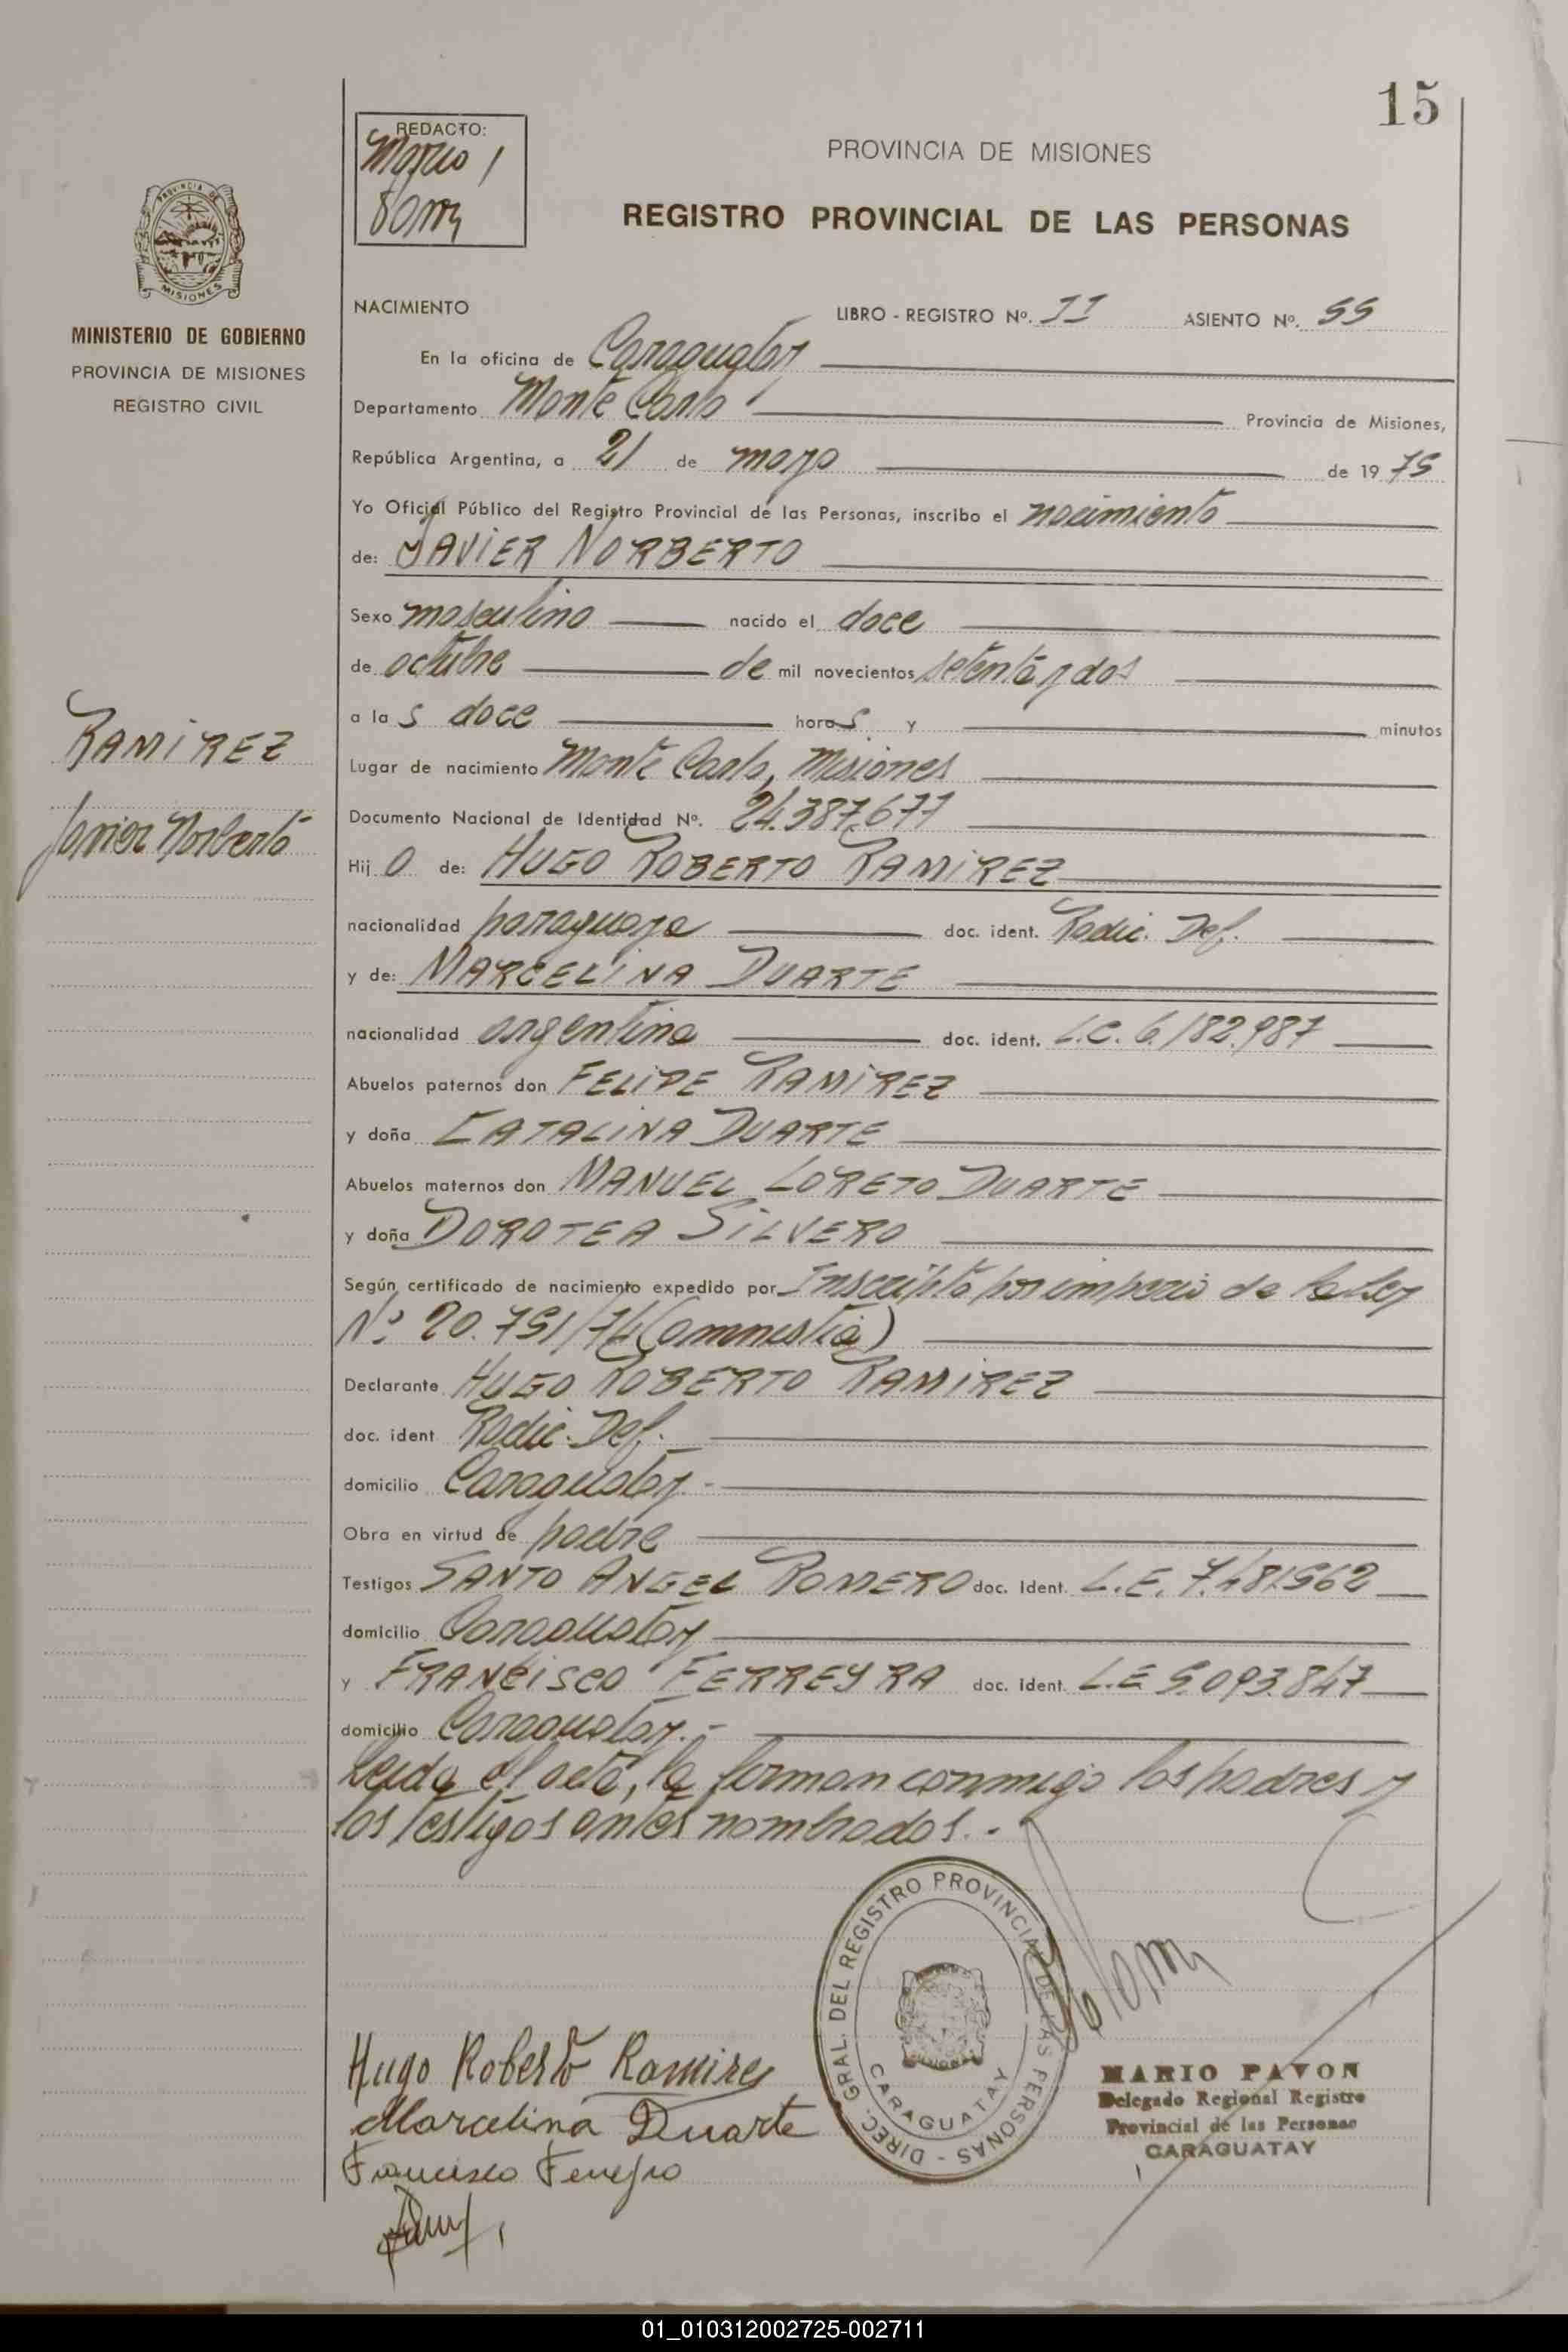 15
REDACTO:
PROVINCIA DE MISIONES
REGISTRO PROVINCIAL DE LAS PERSONAS
PROVINCIA DE
MISIONES
MINISTERIO DE GOBIERNO
PROVINCIA DE MISIONES
REGISTRO CIVIL
NACIMIENTO LIBRO - REGISTRO Nº. II ASIENTO Nº. 55
En la oficina de Caraguatay
Departamento Monte Carlo Provincia de Misiones,
República Argentina, a 21 de mayo de 1975
Yo Oficial Público del Registro Provincial de las Personas, inscribo el nacimiento
de: JAVIER NORBERTO
Sexo masculino nacido el doce
de octubre de mil novecientos setenta y dos
a las doce horas y minutos
RAMIREZ
Lugar de nacimiento Monte Carlo, Misiones
Documento Nacional de Identidad Nº. 24.387.677
Javier Norberto
Hijo de: HUGO ROBERTO RAMIREZ
nacionalidad paraguaya doc. ident. Radic. Def.
y de: MARCELINA DUARTE
nacionalidad argentina doc. ident. L.C. 6.182.987
Abuelos paternos don FELIPE RAMIREZ
y doña CATALINA DUARTE
Abuelos maternos don MANUEL LORETO DUARTE
y doña DOROTEA SILVERO
Según certificado de nacimiento expedido por Inscripto por imperio de la Ley
Nº 20.751/74 (amnistia)
Declarante HUGO ROBERTO RAMIREZ
doc. ident Radic. Def.
domicilio Caraguatay.-
Obra en virtud de padre
Testigos SANTO ANGEL ROMERO doc. Ident. L.E. 7.481.562
domicilio Caraguatay
y FRANCISCO FERREYRA doc. ident. L.E 5.093.847
domicilio Caraguatay.-
Leida el acta, la firman conmigo los padres y
los testigos antes nombrados.-
DIREC. GRAL. DEL REGISTRO PROVINCIAL DE LAS PERSONAS -
CARAGUATAY
Hugo Roberto Ramires
Marcelina Duarte
Francisco
MARIO PAVON
Delegado Regional Registro
Provincial de las Personas
CARAGUATAY
01_010312002725-002711